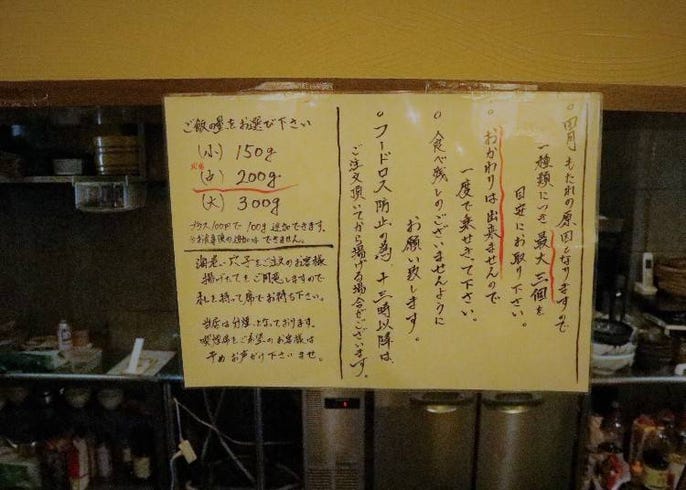 ○胃もたれの原因となりますので
一種類につき最大三個を
目安にお取り下さい。
○おかわりは出来ませんので
一度で乗せきって下さい。
○食べ残しのございませんように
お願い致します。
○フードロス防止の為、十三時以降は
ご注文頂いてから揚げる場合がございます。
ご飯の量をお選び下さい
(小) 150g
(中) 200g
(大) 300g
プラス100円で100g追加できます。
※お食事後の追加はできません。
海老・穴子をご注文のお客様
揚げたてをご用意しますので
札を持って席でお待ち下さい。
当店は分煙となっております。
喫煙席をご希望のお客様は
予めお声がけ下さいませ。